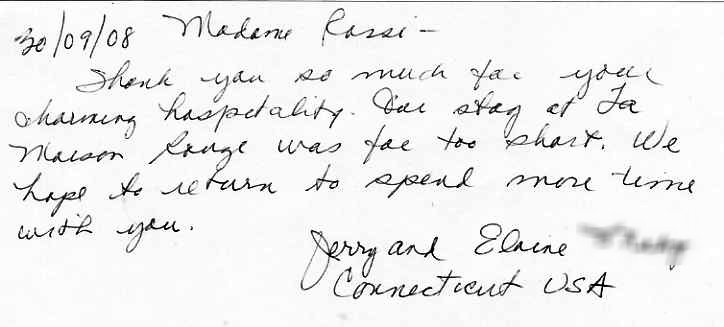 30/09/08 Madame Rossi -
Thank you so much for your
charming hospitality. Our stay at La
Maison Rouge was far too short. We
hope to return to spend more time
with you.
Jerry and Elaine
Connecticut USA